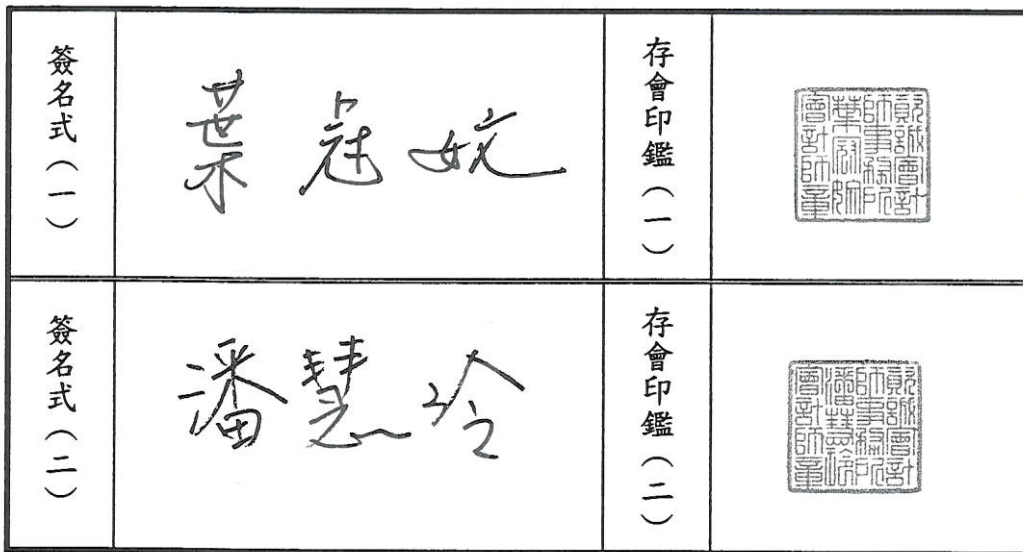 簽名式（一）
葉冠妏
存會印鑑（一）
資誠會計
師事務所
葉冠妏
會計師章
簽名式（二）
潘慧玲
存會印鑑（二）
資誠會計
師事務所
潘慧玲
會計師章